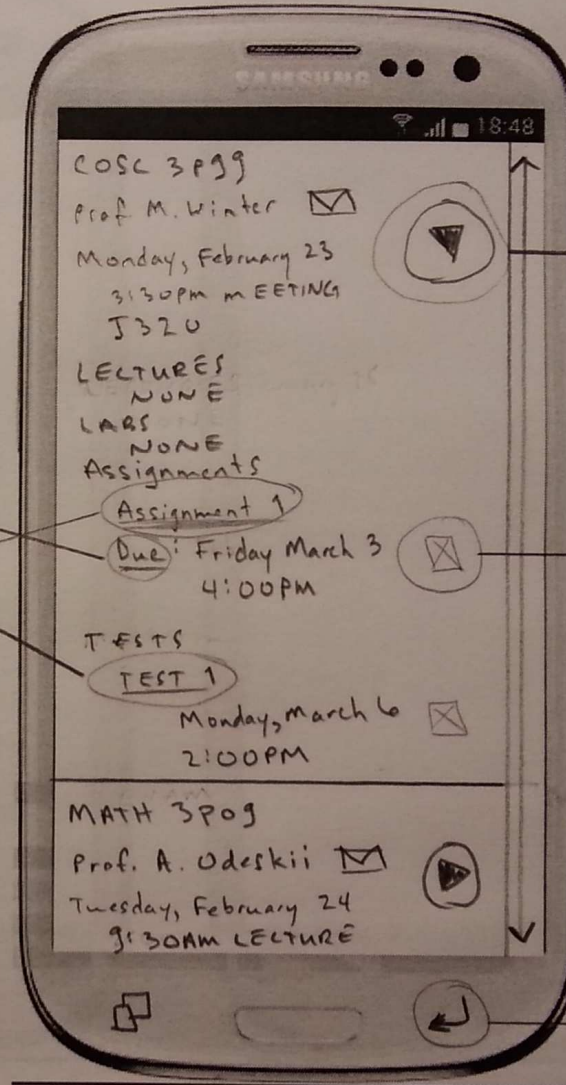 SAMSUNG
18:48
COSC 3P99
Prof M. Winter
Monday, February 23
3:30pm mEETING
J320
LECTURES
NONE
LABS
NONE
Assignments
Assignment 1
Due: Friday March 3
4:00PM
TESTS
TEST 1
Monday, March 6
2:00PM
MATH 3P09
Prof. A. Odeskii
Tuesday, February 24
9:30AM LECTURE